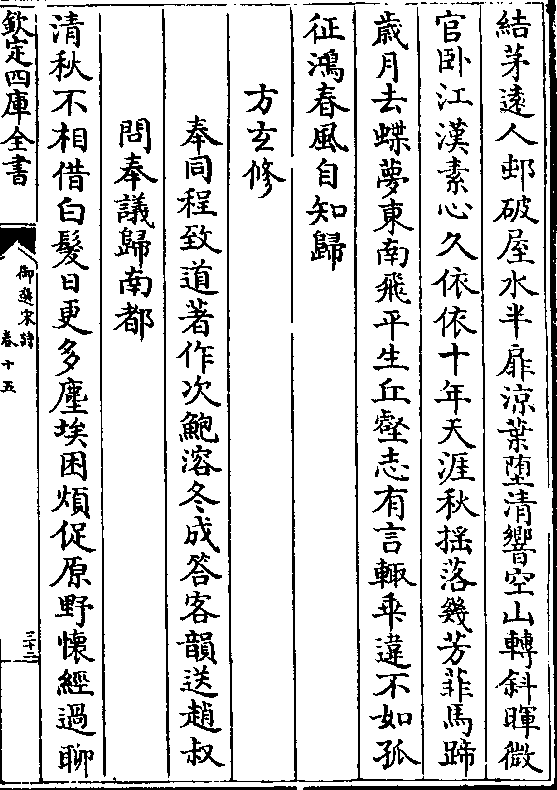 結茅遠人邨破屋水半扉涼葉墮清響空山轉斜暉微
官卧江漢素心久依依十年天涯秋揺落幾芳菲馬蹄
歲月去蝶夢東南飛平生丘壑志有言輙乖違不如孤
征鴻春風自知歸
方玄修
奉同程致道著作次鮑溶冬成答客韻送趙叔
問奉議歸南都
清秋不相借白髮日更多塵埃困煩促原野懷經過聊
欽定四庫全書
御選宋詩
卷十五
三十二